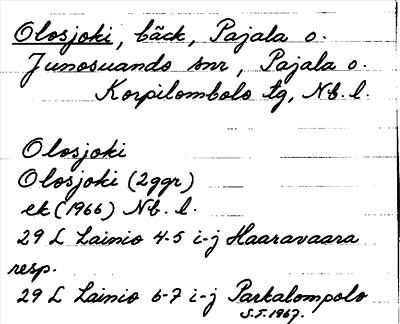 Olosjoki, bäck, Pajala o.
Junosuando snr, Pajala o.
Korpilombolo tg, Nb. l.
Olosjoki
Olosjoki (2ggr)
ek (1966) Nb. l.
29 L Lainio 4-5 i-j Haaravaara
resp.
29 L Lainio 6-7 i-j Parkalompolo
S.F. 1967.